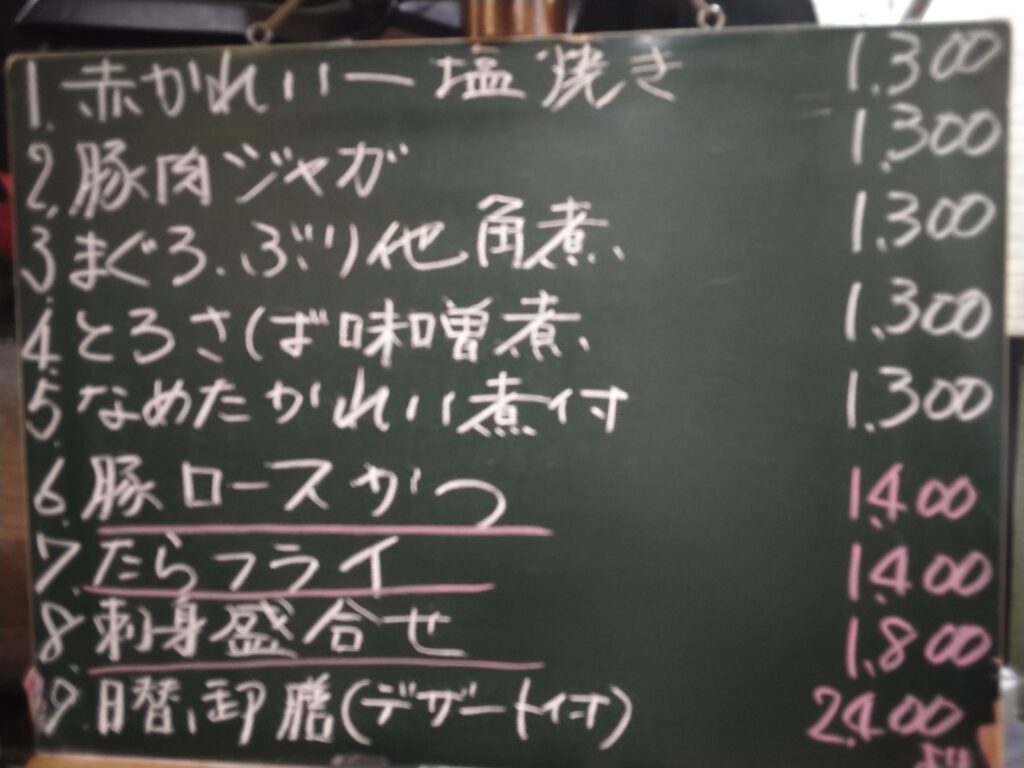 1. 赤かれい一塩焼き 1.300
2. 豚肉ジャガ 1.300
3. まぐろ、ぶり他角煮 1.300
4. とろさば味噌煮 1.300
5. なめたかれい煮付 1.300
6. 豚ロースかつ 1.400
7. たらフライ 1.400
8. 刺身盛合せ 1.800
9. 日替り御膳(デザート付) 2.400